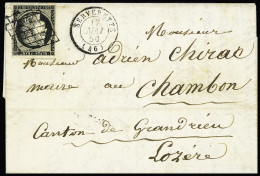 SERVERETTE
(46)
Monsieur
Monsieur adrien Chiras
maire au
Chambon
Canton de Grandrieu
Lozère